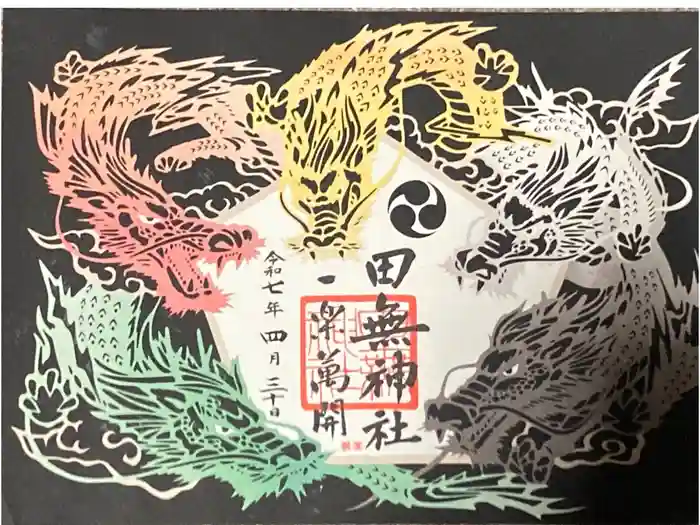 田無神社
一楽萬開
令和七年 四月 三十日